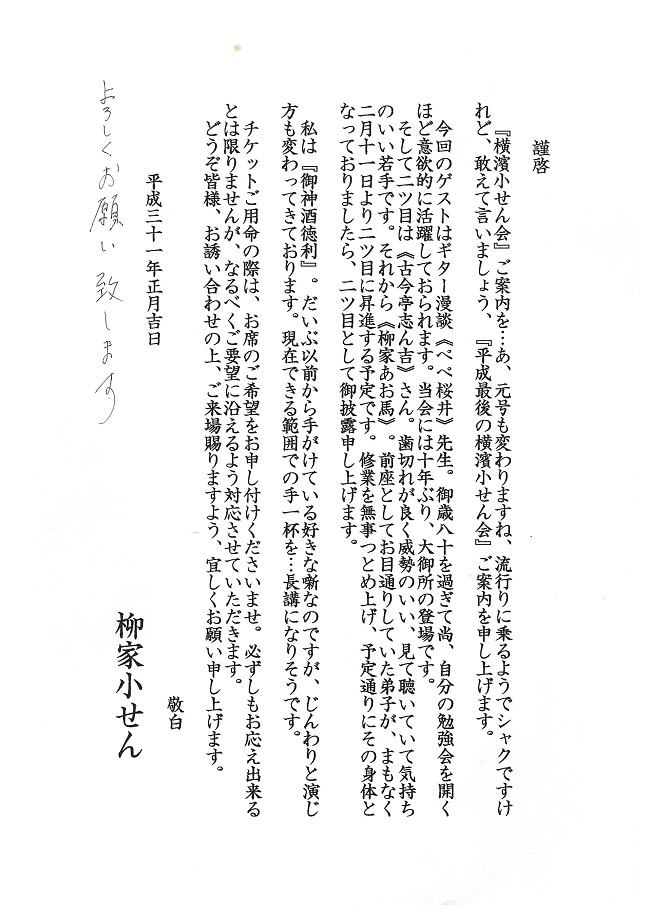 謹啓
『横濱小せん会』ご案内を…あ、元号も変わりますね、流行りに乗るようでシャクですけ
れど、敢えて言いましょう、『平成最後の横濱小せん会』ご案内を申し上げます。
今回のゲストはギター漫談《ぺぺ桜井》先生。御歳八十を過ぎて尚、自分の勉強会を開く
ほど意欲的に活躍しておられます。当会には十年ぶり、大御所の登場です。
そして二ツ目は《古今亭志ん吉》さん。歯切れが良く威勢のいい、見て聴いていて気持ち
のいい若手です。それから《柳家あお馬》。前座としてお目通りしていた弟子が、まもなく
二月十一日より二ツ目に昇進する予定です。修業を無事つとめ上げ、予定通りにその身体と
なっておりましたら、二ツ目として御披露申し上げます。
私は『御神酒徳利』。だいぶ以前から手がけている好きな噺なのですが、じんわりと演じ
方も変わってきております。現在できる範囲での手一杯を…長講になりそうです。
チケットご用命の際は、お席のご希望をお申し付けくださいませ。必ずしもお応え出来る
とは限りませんが、なるべくご要望に沿えるよう対応させていただきます。
どうぞ皆様、お誘い合わせの上、ご来場賜りますよう、宜しくお願い申し上げます。
敬白
平成三十一年正月吉日
柳家小せん
よろしくお願い致します